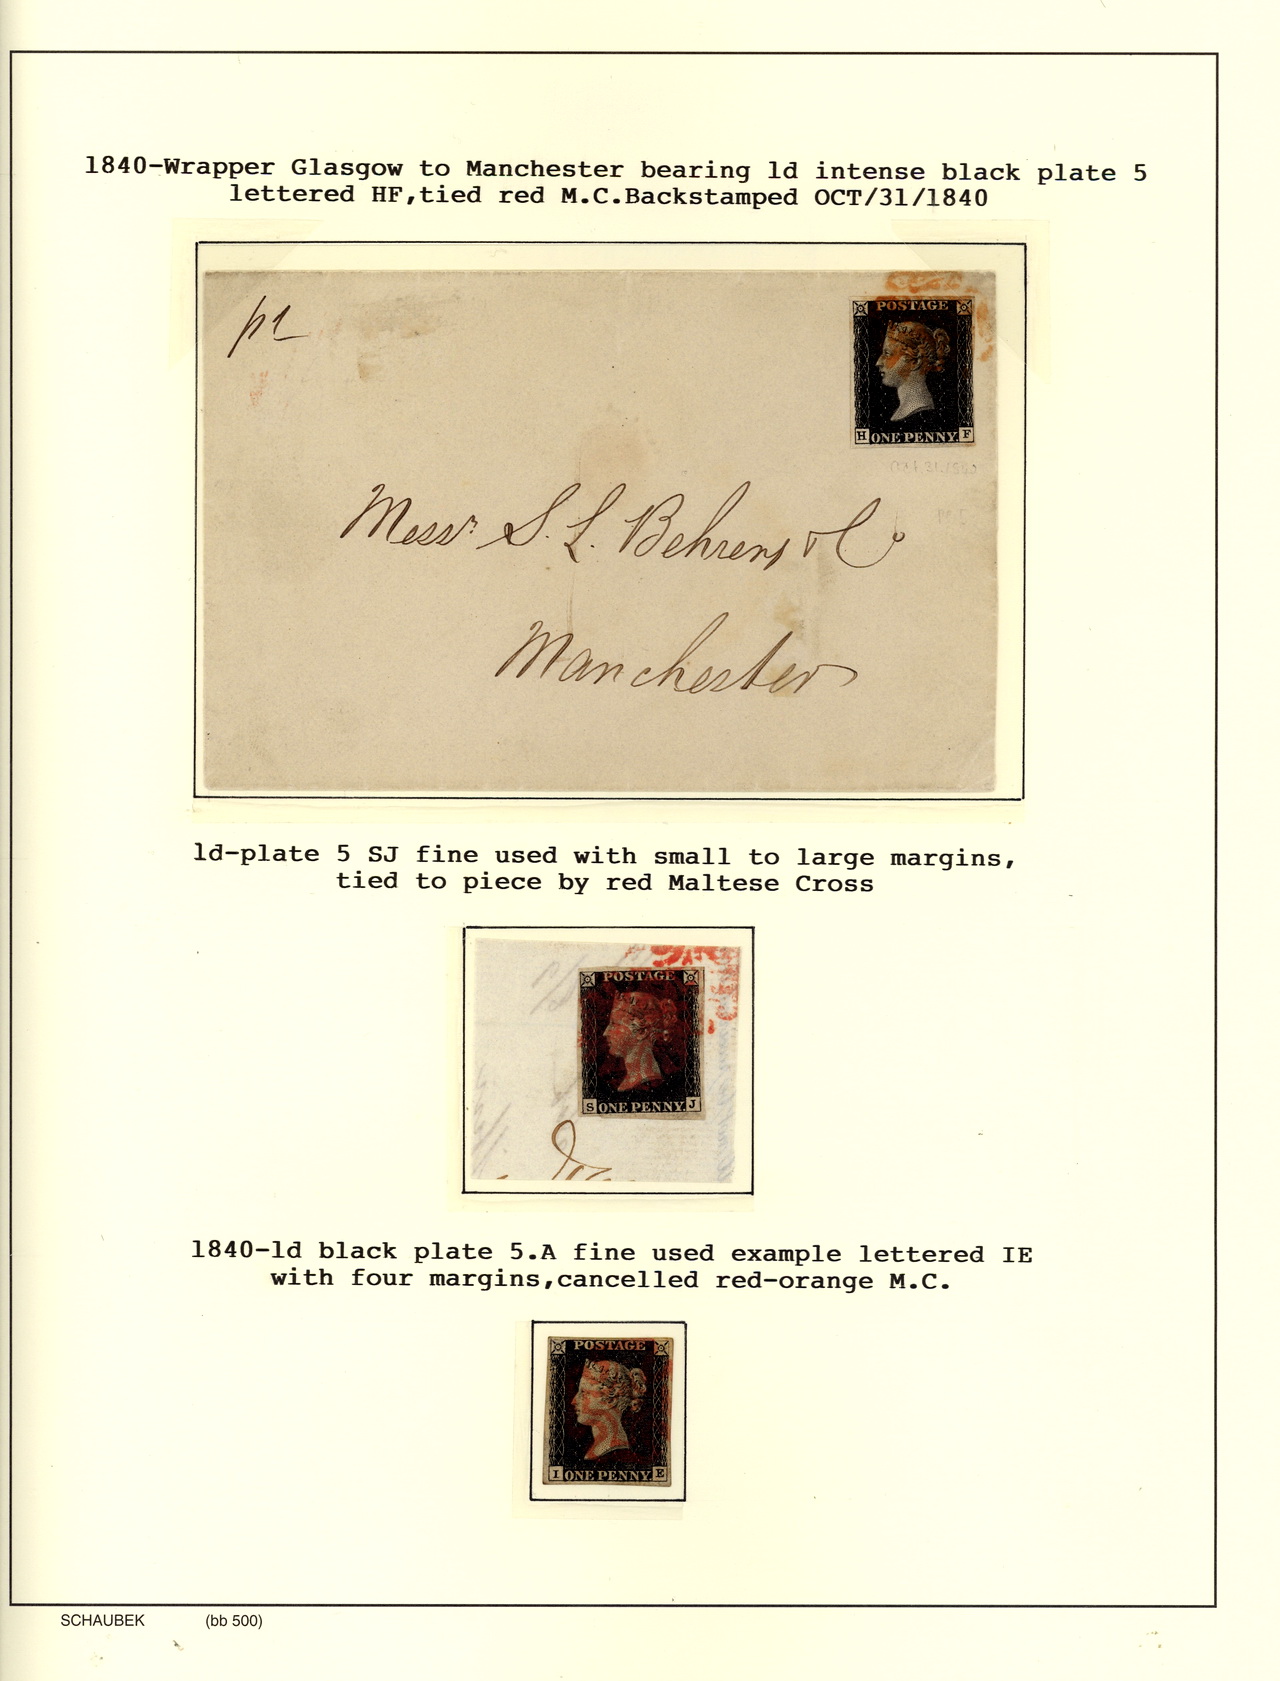 1840-Wrapper Glasgow to Manchester bearing 1d intense black plate 5
lettered HF,tied red M.C.Backstamped OCT/31/1840
POSTAGE
H ONE PENNY F
Messrs S. L. Behrens & Co
Manchester
1d-plate 5 SJ fine used with small to large margins,
tied to piece by red Maltese Cross
POSTAGE
S ONE PENNY J
1840-1d black plate 5.A fine used example lettered IE
with four margins,cancelled red-orange M.C.
POSTAGE
I ONE PENNY E
SCHAUBEK (bb 500)